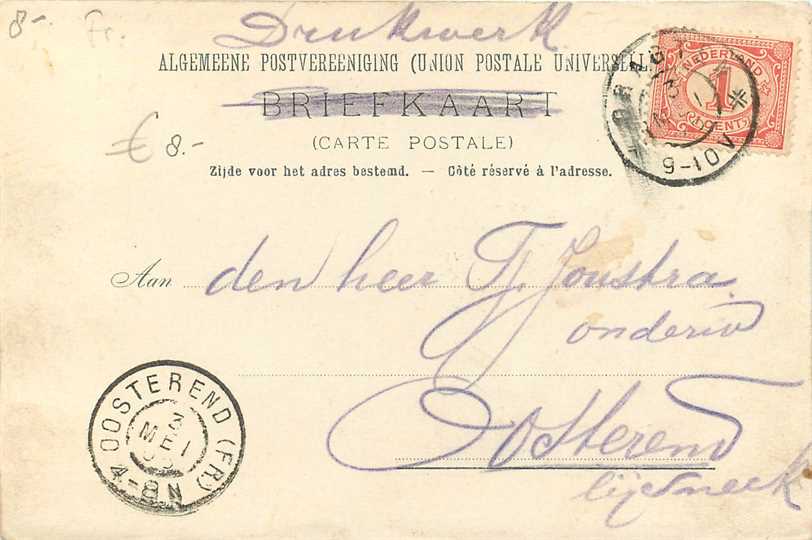 8-
Fr.
Drukwerk
ALGEMEENE POSTVEREENIGING (UNION POSTALE UNIVERSELLE)
BRIEFKAART
(CARTE POSTALE)
€ 8.-
Zijde voor het adres bestemd. — Côté réservé à l'adresse.
NEDERLAND
1
CENT
9-10V
Aan den heer Tj. Joustra
onderw
Oosterend
OOSTEREND (FR)
3
MEI
4-8N